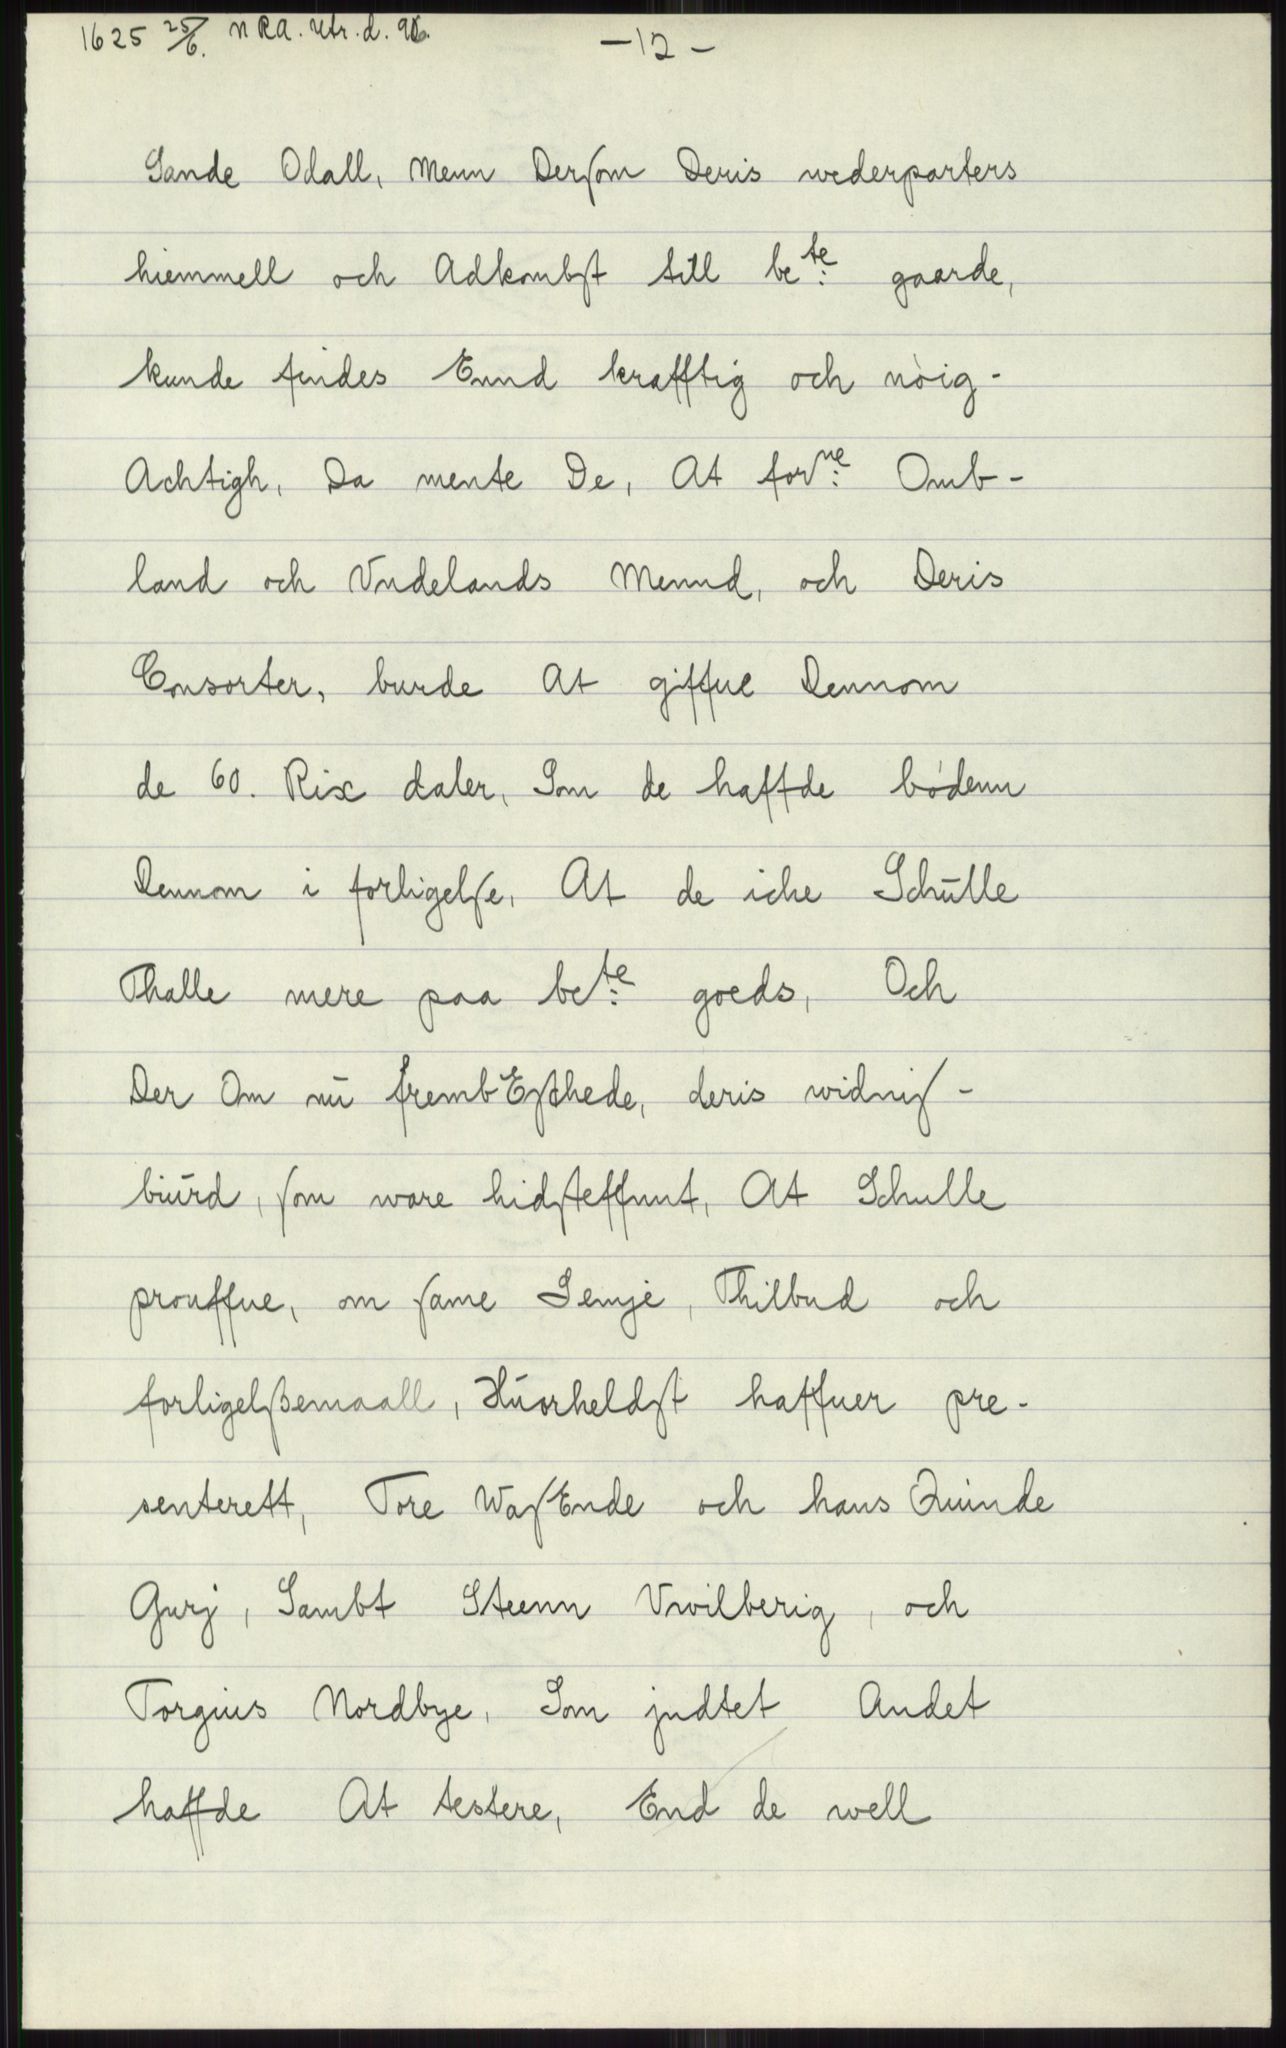 1625 25/6. N RA. Utr. d. 96.
-12-
Sande Odall, Menn Derſom Deris wederparters
hiemmell och Adkombſt till be^te: gaarde,
kunde findes Ennd krafftig och nòig-
Achtigh, Da mente De, At for^ne: Omb-
land och Vndelands Mennd, och Deris
Consorter, burde At giffue Dennom
de 60. Rix daler, Som de haffde bòdenn
Dennom i forligelſe, At de iche Schūlle
Thalle mere paa be^te: goeds, Och
Der Om nū frembEſthede, deris widniſ-
biūrd, ſom ware hidſteffnnt, At Schulle
prouffue, om ſame Semje, Thilbud och
forligelſzemaall, Hūorheldſt haffuer pre-
senterett, Tore WaſEnde och hans Quinde
Gurj, Sambt Steenn Vwilberig, och
Torgiuus Nordbye, Som jndtet Andet
haffde At testere, End de well